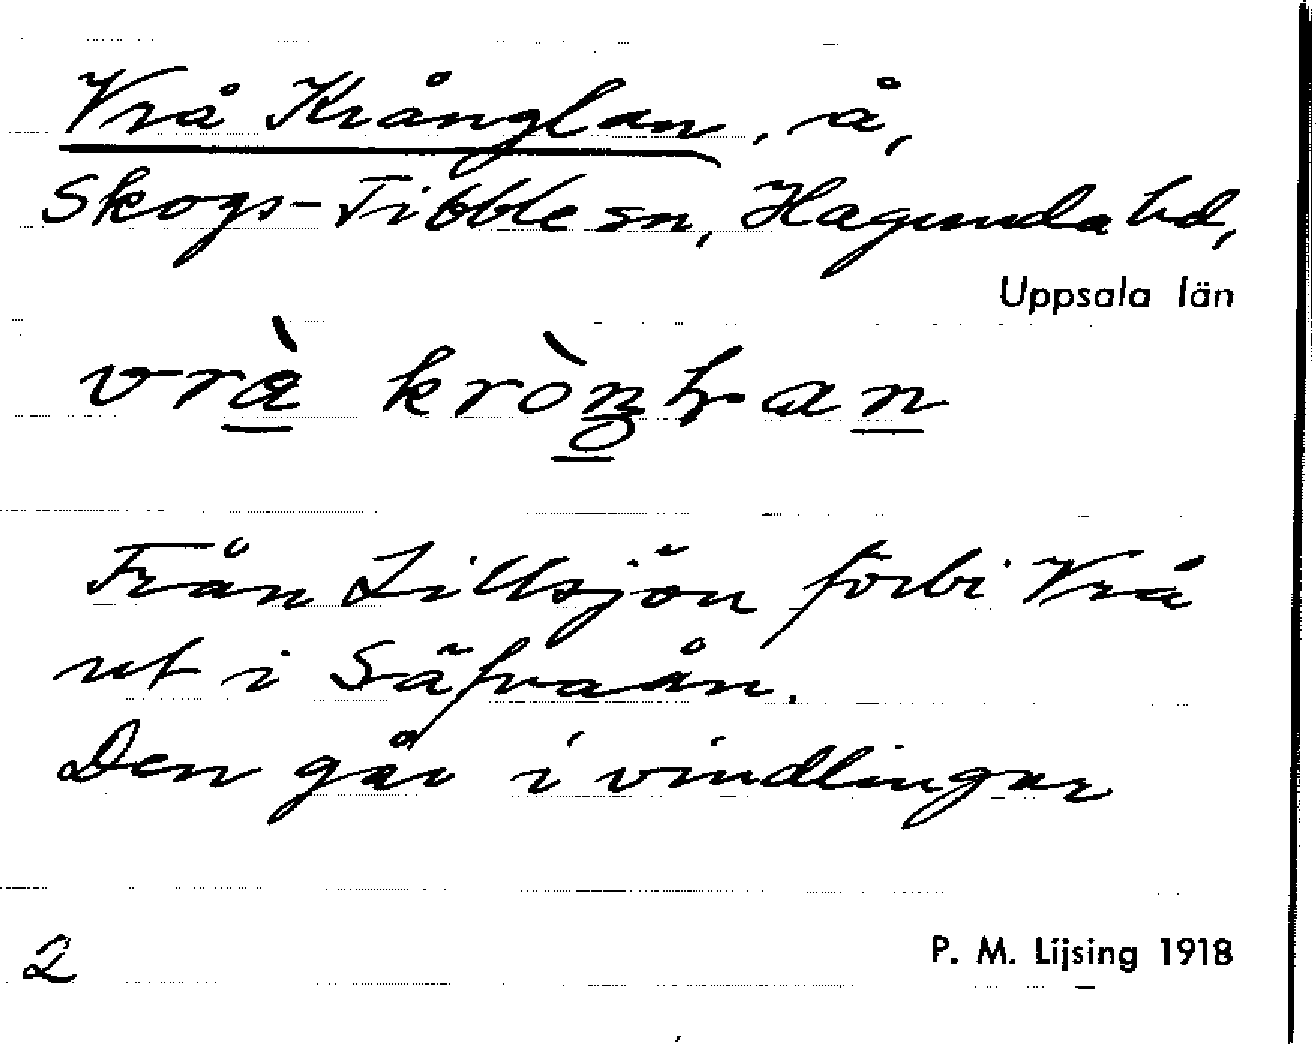 Vrå Krånglan, å,
Skogs-Tibble sn, Hagunda hd,
Uppsala län
Från Lillsjön förbi Vrå
ut i Säfvaån.
Den går i vindlingar
2
P. M. Lijsing 1918